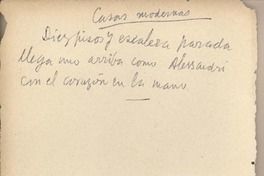 Casas modernas
Diez pisos y escalera parada
llega uno arriba como Alessandri
con el corazón en la mano